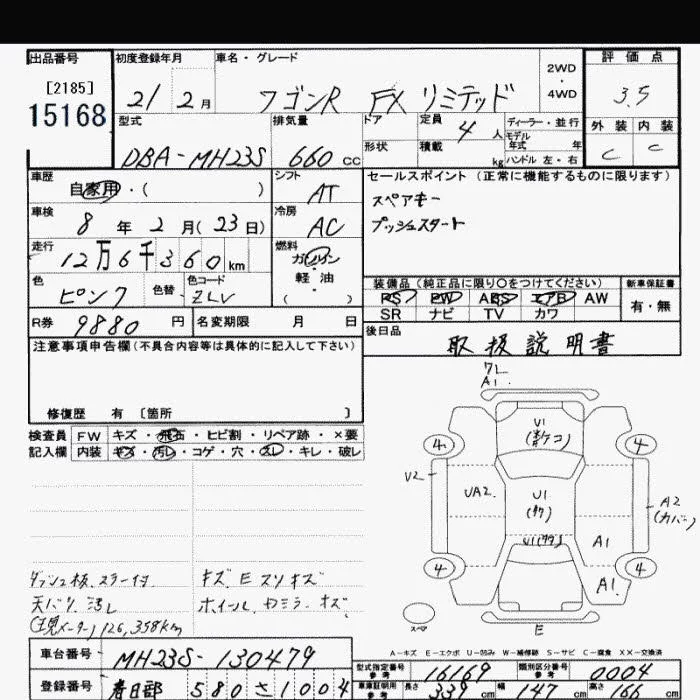 出品番号 初度登録年月 車名・グレード 評価点
[2185]
15168
21 2月 ワゴンR FX リミテッド
2WD
・
4WD
3.5
型式 排気量 ドア 定員 4人 ディーラー・並行
モデル年式 年
外装 内装
DBA-MH23S 660cc 形状 積載 kg ハンドル 左・右 C C
車歴 シフト セールスポイント(正常に機能するものに限ります)
自家用・( ) AT スペアキー
車検 冷房 プッシュスタート
8年2月(23日) AC
走行 燃料
12万6千360km ガソリン
軽油
( )
色 色替 色コード 装備品(純正品に限り○をつけてください) 新車保証書
ピンク ZLV PS PW ABS エアB AW 有・無
SR ナビ TV カワ
R券 9880円 名変期限 月 日 後日品
取扱説明書
注意事項申告欄(不具合内容等は具体的に記入して下さい)
修復歴 有[箇所 ]
検査員 FW キズ・飛石・ヒビ割・リペア跡・×要
記入欄 内装 キズ・汚レ・コゲ・穴・スレ・キレ・破レ
ワレ
A1
U1
4 4
U2 UA2 U1 A2
(カバー)
A1
4 4
A1
スペア
E
キズ E スリキズ
天バリ汚レ ホイール.
126,358km
A-キズ E-エクボ U-凹み W-補修跡 S-サビ C-腐食 XX-交換済
車台番号 MH23S-130479
型式指定番号 参考 16169 類別区分番号 参考 0004
登録番号 春日部 580 さ 1004
車庫証明用 参考 長さ 339cm 幅 147cm 高さ 166cm